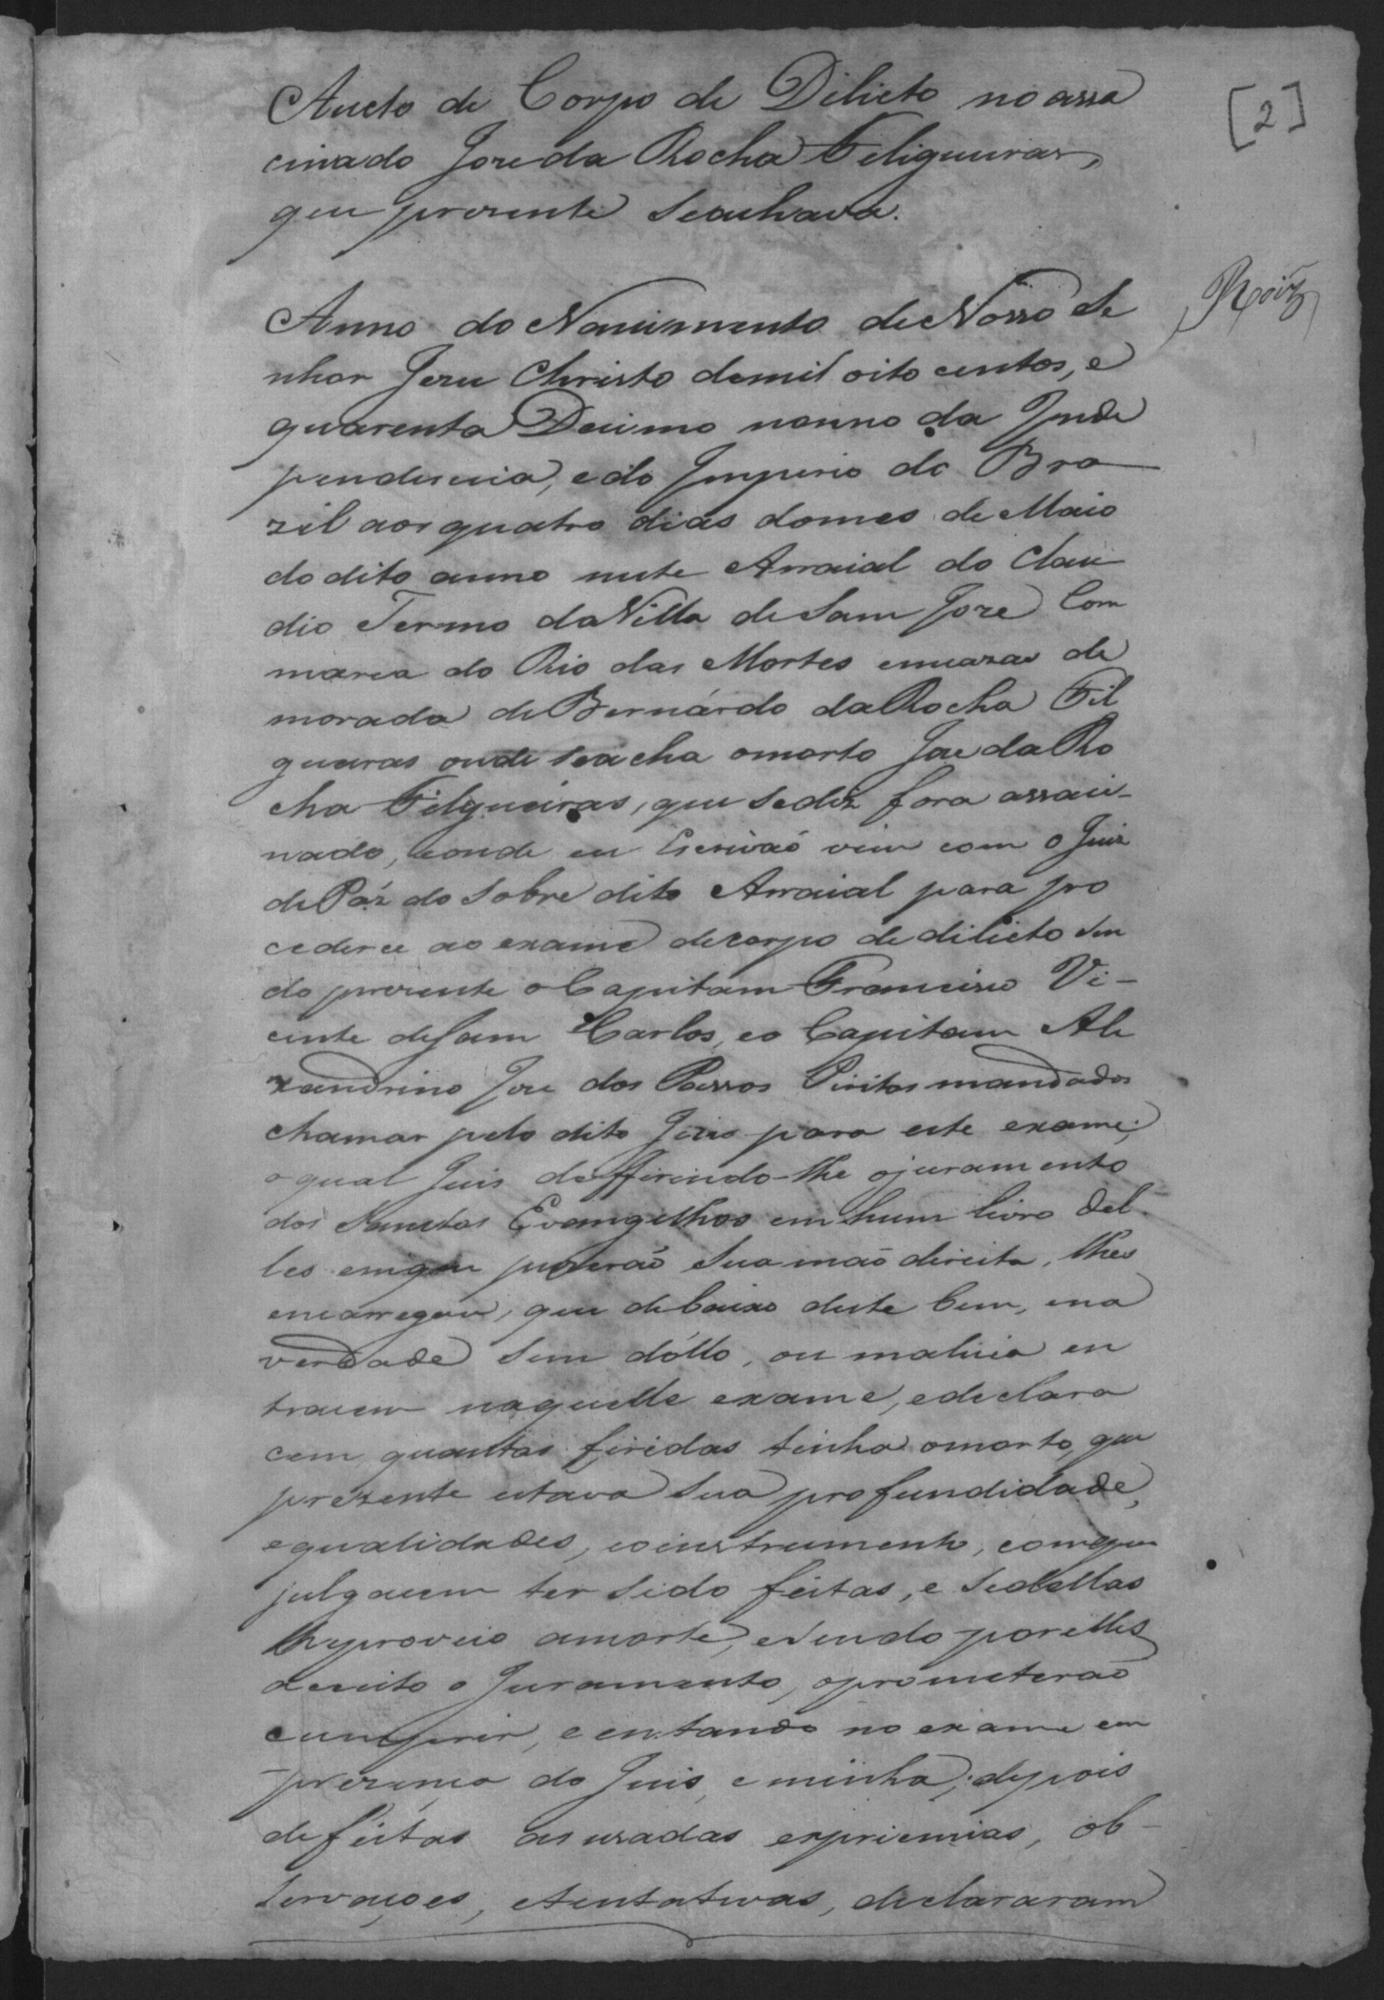 Aucto de Corpo de Dilicto no assa
cinado Joze da Rocha Feligueiras,
que prezente se achava.
[2]
Roiz
Anno do Nascimento de Nosso Se
nhor Jezu Christo de mil oito centos, e
quarenta Decimo nonno da Inde
pendencia, e do Imperio do Bra
zil aos quatro dias do mes de Maio
do dito anno neste Arraial do Clau
dio Termo da Villa de Sam Joze Com
marca do Rio das Mortes em cazas de
morada de Bernárdo da Rocha Fil
gueiras onde se acha o morto Joze da Ro
cha Filgueiras, que se diz fora assaci-
nado, e onde eu Escrivaõ vim com o Juiz
de Páz do sobre dito Arraial para pro
cederce ao exame de corpo de dilicto sen
do prezente o Capitam Francisco Vi-
cente de Sam Carlos, e o Capitam Ale
xandrino Joze dos Passos Piritos mandados
chamar pelo dito Juis para este exame;
o qual Juis defferindo-lhe o juramento
dos Sanctos Evangelhos em hum livro del-
les em que puzeraõ sua maõ direita, lhes
encarregou, que debaixo deste bem, e na
verdade sem dóllo, ou malicia en
tracem naquelle exame, e declara
cem quantas firidas tinha o morto, que
prezente estava sua profundidade,
e qualidades, e o instrumento, com que
julgacem ter sido feitas, e se dellas
lhe proveio a morte, e sendo por elles
aceito o Juramento, o prometeraõ
cumprir, e entrando no exame em
prezença do Juis, e minha; depois
de feitas as uzadas expriencias, ob-
servaçoes, e tentativas, declararam